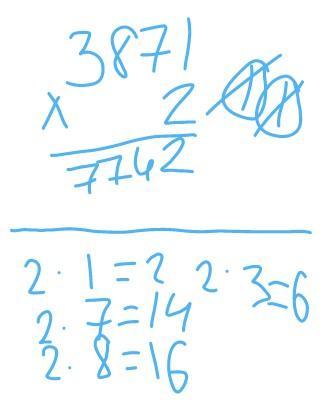 3871
x 2 1 1
7742
2 · 1 = 2 2 · 3 = 6
2 · 7 = 14
2 · 8 = 16